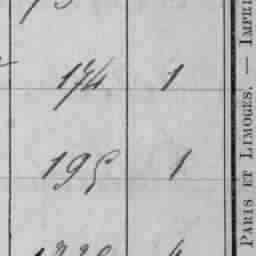 174 1
195 1
PARIS ET LIMOGES. — IMPRI